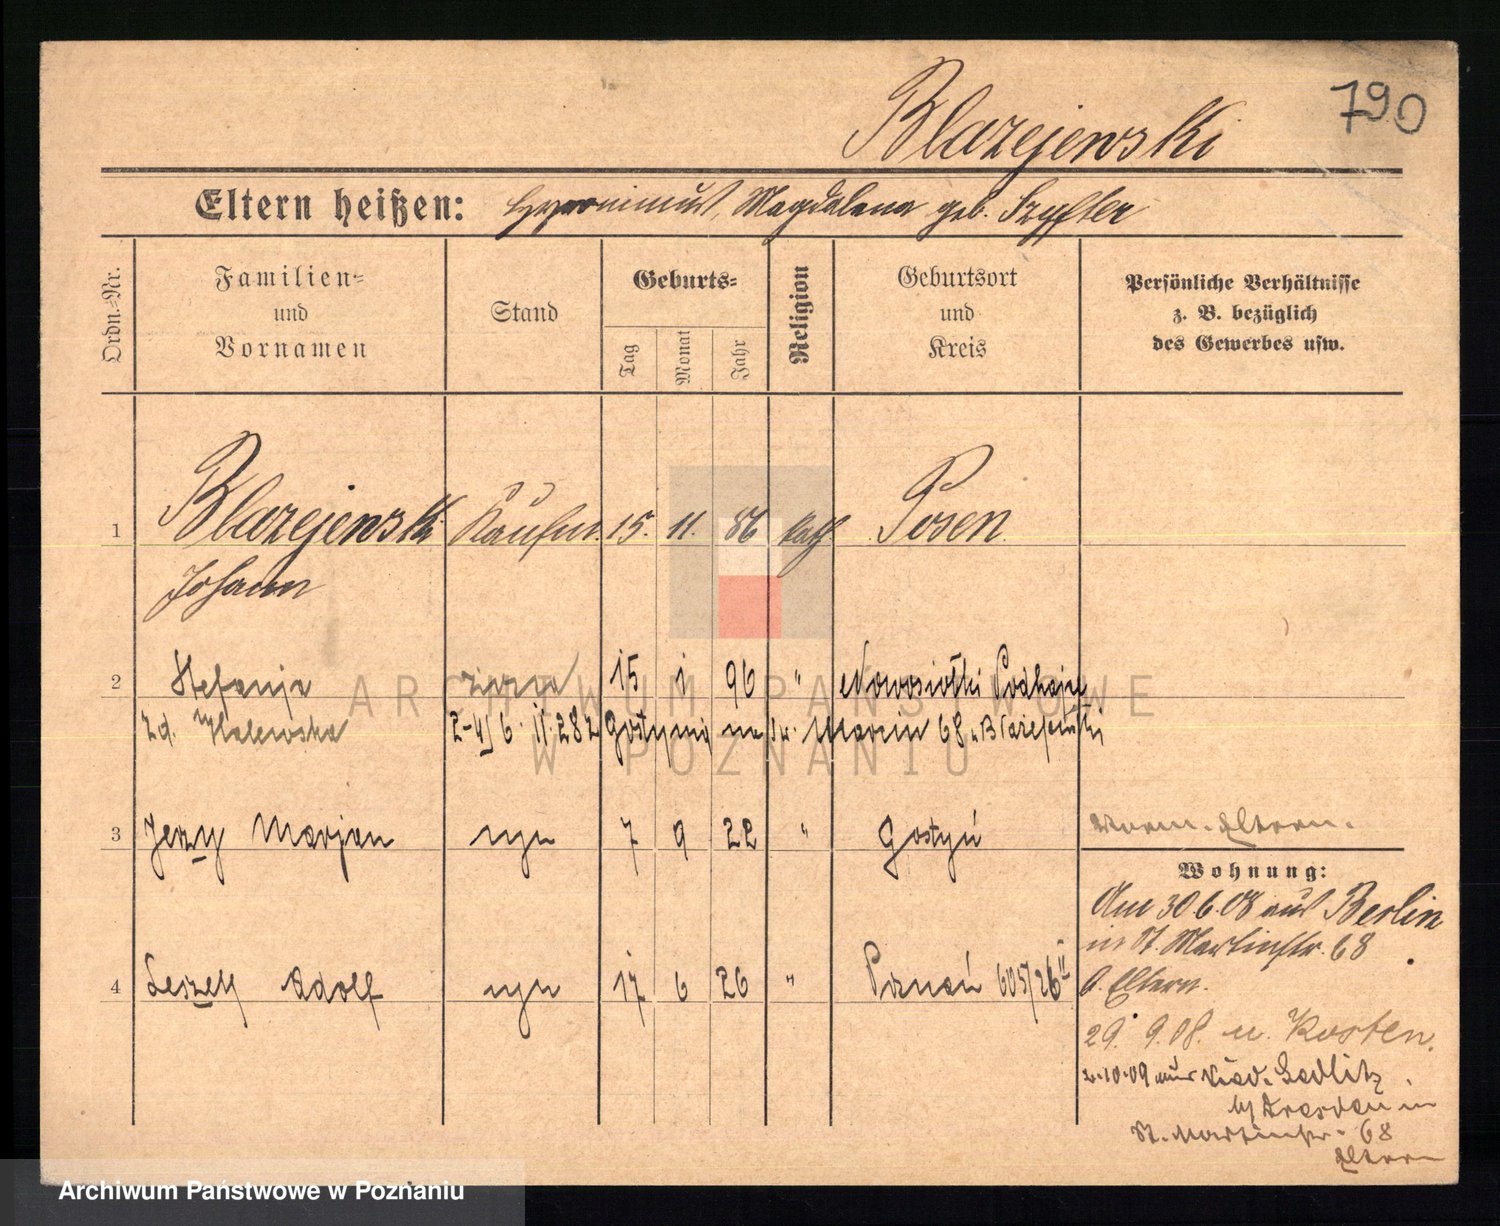 790
Blazejewski
Eltern heißen: Hyeronimus, Magdalena geb. Szyfter
Ordn.-Nr.
Familien-
und
Vornamen
Stand
Geburts-
Tag
Monat
Jahr
Religion
Geburtsort
und
Kreis
Persönliche Verhältnisse
z. B. bezüglich
des Gewerbes usw.
1 Blazejewski Kaufm. 15. 11. 86 kath Posen
Johann
2 Stefanja żona 15 1 96 " Nowosiółki Podhajce
zd. Halewska 282 Gostynia na św. Marcin 68
3 Jerzy Marjan syn 7 9 22 " Gostyń
4 Leszek Adolf syn 17 6 26 " Poznań 605/26 II
Eltern.
Wohnung:
Am 30 6.08 aus Berlin
in St. Martinstr. 68
b. Eltern.
29. 9.08. n. Kosten.
2.10.09 aus Nied. Sedlitz
b/ Dresden in
St. Martinstr. 68
Eltern
ARCHIWUM PAŃSTWOWE
W POZNANIU
Archiwum Państwowe w Poznaniu